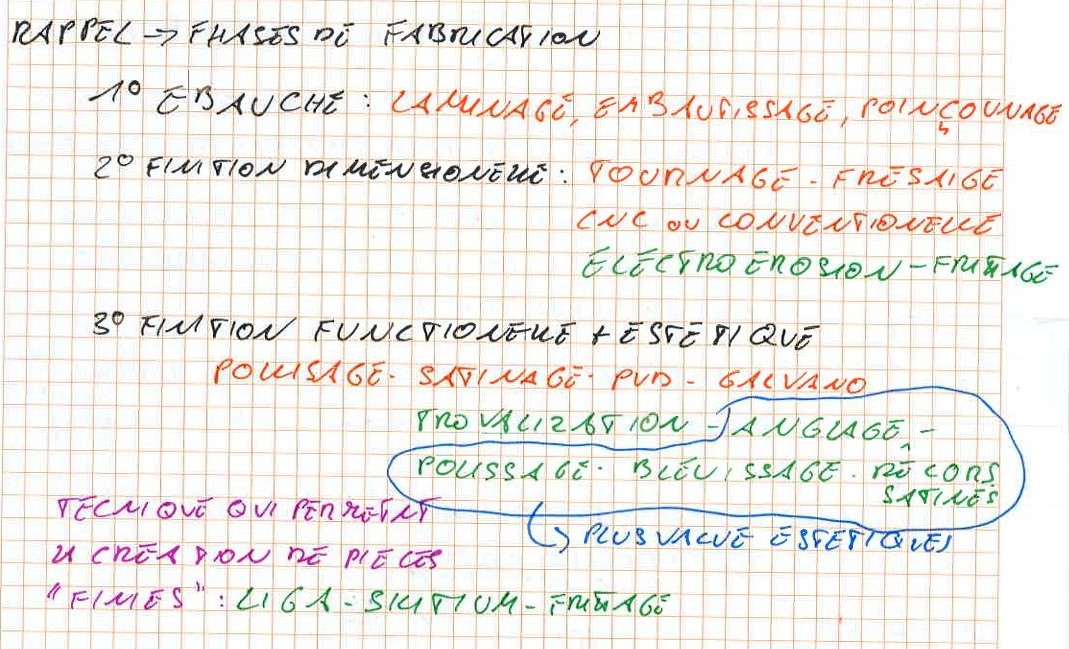 RAPPEL → PHASES DE FABRICATION
1° EBAUCHE : LAMINAGE, EMBAUTISSAGE, POINÇONNAGE
2° FINITION DIMENSIONELLE : TOURNAGE - FRESAIGE
CNC OU CONVENTIONELLE
ELECTROEROSION - FRITTAGE
3° FINITION FUNCTIONELLE + ESTETIQUE
POLISAGE - SATINAGE - PVD - GALVANO
TROVALIZATION - ANGLAGE -
POLISSAGE - BLEUISSAGE - DECORS
SATINES
→ PLUS VALUE ESTETIQUES
TECNIQUE QUI PERMETAT
LA CREATION DE PIECES
"FINIES" : LIGA - SILITIUM - FRITTAGE